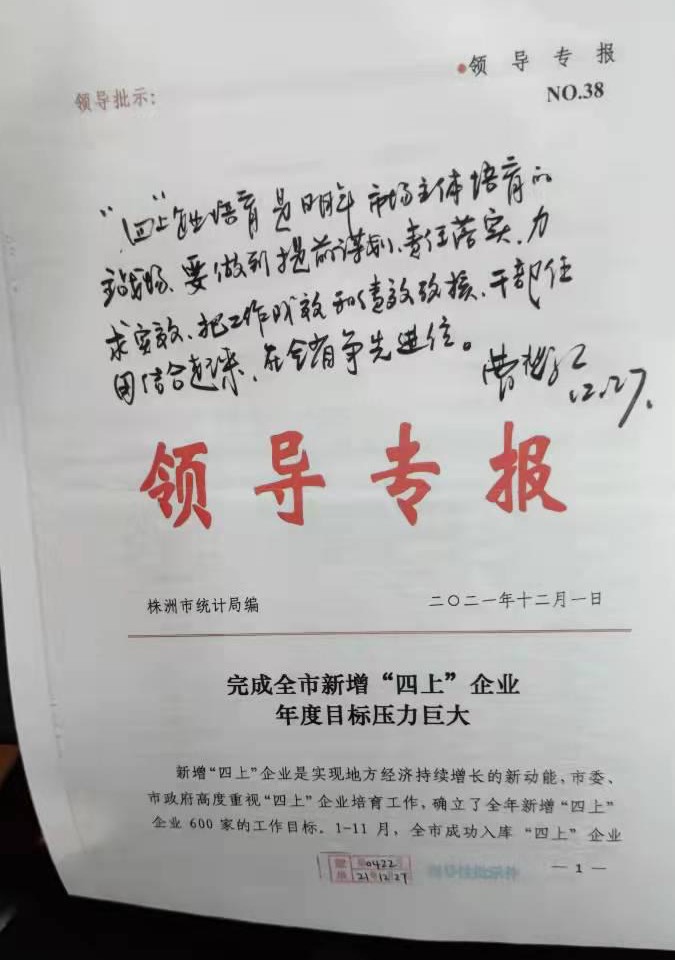 领导专报
NO.38
领导批示：
“四上”企业培育是明年市场主体培育的
主战场、要做到提前谋划、责任落实、力
求实效、把工作成效和绩效考核、干部任
用结合起来、在全省争先进位。
12.27.
领导专报
株洲市统计局编
二〇二一年十二月一日
完成全市新增“四上”企业
年度目标压力巨大
新增“四上”企业是实现地方经济持续增长的新动能，市委、
市政府高度重视“四上”企业培育工作，确立了全年新增“四上”
企业 600 家的工作目标。1-11 月，全市成功入库“四上”企业
0422
21 12 27
— 1 —